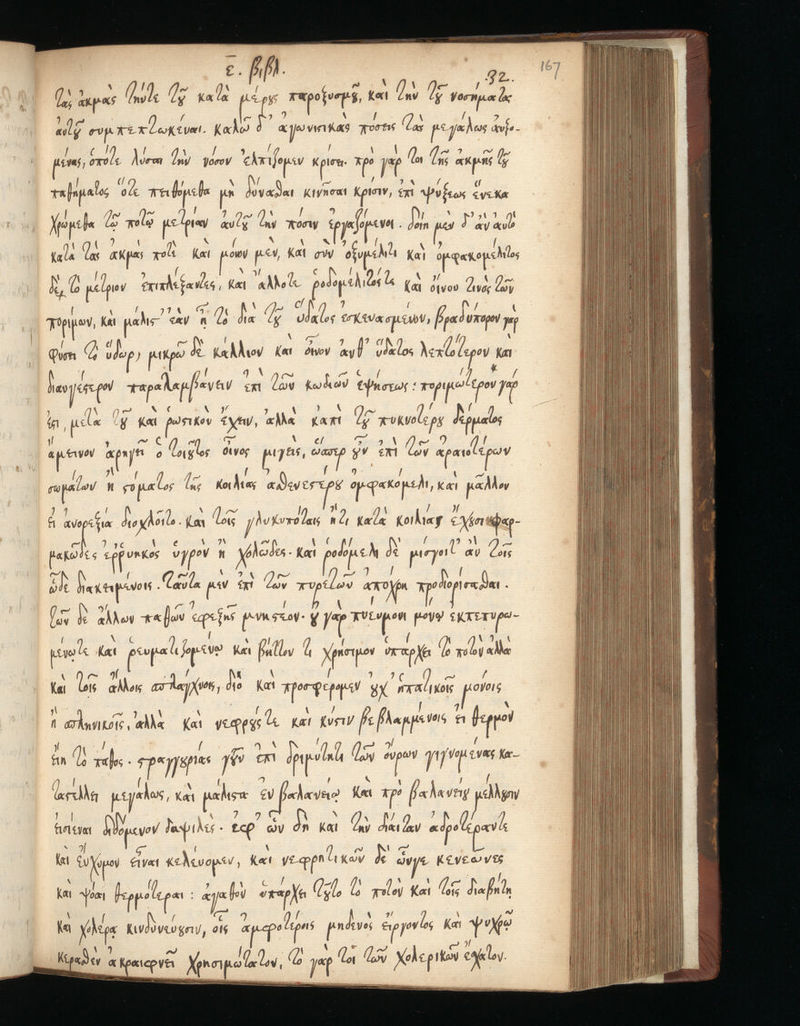 ε̅. βιβλ.
32.
167
τὰς ἀκμὰς τήντε τοῦ κατὰ μέρος παροξυσμοῦ, καὶ τὴν τοῦ νοσήματος
ἀυτοῦ συμπεπτωκέναι. καλῶ δ' ἀγωνιστικὰς πόσεις τὰς μεγάλως ἀυξο-
μένας, ὁπότε λύσαι τὴν νόσον ἐλπίζομεν κρίσει. πρὸ γάρ τοι τῆς ἀκμῆς τοῦ
παθήματος ὅτε πειθόμεθα μὴ δύνασθαι κινῆσαι κρίσιν, ἐπὶ ψύξεως ἕνεκα
χρώμεθα τῷ ποτῷ μετρίαν ἀυτοῦ τὴν πόσιν ἐργαζόμενοι. δοίη μὲν δ' ἂν ἀυτὸ
κατὰ τὰς ἀκμὰς ποτὲ καὶ μόνον μὲν, καὶ σὺν ὀξυμέλιτι καὶ ὀμφακομέλιτος
δὲ τὸ μέτριον ἐπιπλέξαντες, καὶ ἄλλοτε ῥοδομέλιτός τε καὶ ὄινου τινὸς τῶν
πορίμων, καὶ μάλιστ' ἐὰν ᾖ τὸ διὰ τοῦ ὕδατος ἐσκευασμένον, βραδύπορον γὰρ
φύσει τὸ ὕδωρ, μικρῶ δὲ κάλλιον καὶ ὄινον ἀνθ' ὕδατος λεπτότερον καὶ
διαυγέστερον παραλαμβάνειν ἐπὶ τῶν κωδιῶν ἑψήσεως: ποριμώτερον γάρ
ἐστι, μετὰ τοῦ καὶ ῥωστικὸν ἔχειν, ἀλλὰ κἀπὶ τοῦ πυκνοτέρου δέρματος
ἄμεινον ἀρηγεῖ ὁ τοιοῦτος ὄινος μιγεὶς, ὥσπερ οὖν ἐπὶ τῶν ἀραιοτέρων
σωμάτων ἢ στόματος τῆς κοιλίας ἀσθενεστέρου ὀμφακόμελι, καὶ μᾶλλον
ἐι ἀνορεξία διοχλοῖτο. καὶ τοῖς γλυκυπόταις ἤ τι κατὰ κοιλίας ἔχουσι φαρ-
μακῶδες ἐρρυηκὸς ὑγρὸν ἢ χολῶδες. καὶ ῥοδόμελι δὲ μίσγοιτ' ἂν τοῖς
ὧδε διακειμένοις. ταῦτα μὲν ἐπὶ τῶν πυρετῶν ἀπόχρη προδιορίσασθαι.
τῶν δὲ ἄλλων παθῶν ἐφεξῆς μνηστέον. οὐ γὰρ πνέυμονι μόνῳ ἐκπεπυρω-
μένῳτε καὶ ῥευματιζομένῳ καὶ βήττον τι χρήσιμον ὑπάρχει τὸ ποτὸν ἀλλὰ
καὶ τοῖς ἄλλοις σπλάγχνοις, διὸ καὶ προσφέρομεν οὐχ' ἡπατικοῖς μόνοις
ἢ σπληνικοῖς, ἀλλὰ καὶ νεφρούς τε καὶ κύστιν βεβλαμμένοις ἐι θερμὸν
ἔιη τὸ πάθος. στραγγουρίας γοῦν ἐπὶ δριμύτητι τῶν ὄυρων γιγνομένας κα-
ταστέλλει μεγάλως, καὶ μάλιστα ἐν βαλανείῳ καὶ πρὸ βαλανείου μέλλουσιν
ἐισιέναι διδόμενον δαψιλές. ἐφ' ὧν δὴ καὶ τὴν δίαιταν ἁδροτέραντε
καὶ ἔυχυμον ἐῖναι κελέυομεν, καὶ νεφρητικῶν δὲ ὧνγε κενεῶνες
καὶ ψόαι θερμότεραι: ἀγαθὸν ὑπάρχει τοῦτο τὸ ποτὸν καὶ τοῖς διαβήτῃ
καὶ χολέρᾳ κινδυνέυουσιν, οἷς ἀμφοτέροις μηδενὸς ἔιργοντος καὶ ψυχρῷ
κερασθὲν ἀκραιφνεῖ χρησιμώτατον, τὸ γάρ τοι τῶν χολερικῶν ἔσχατον.